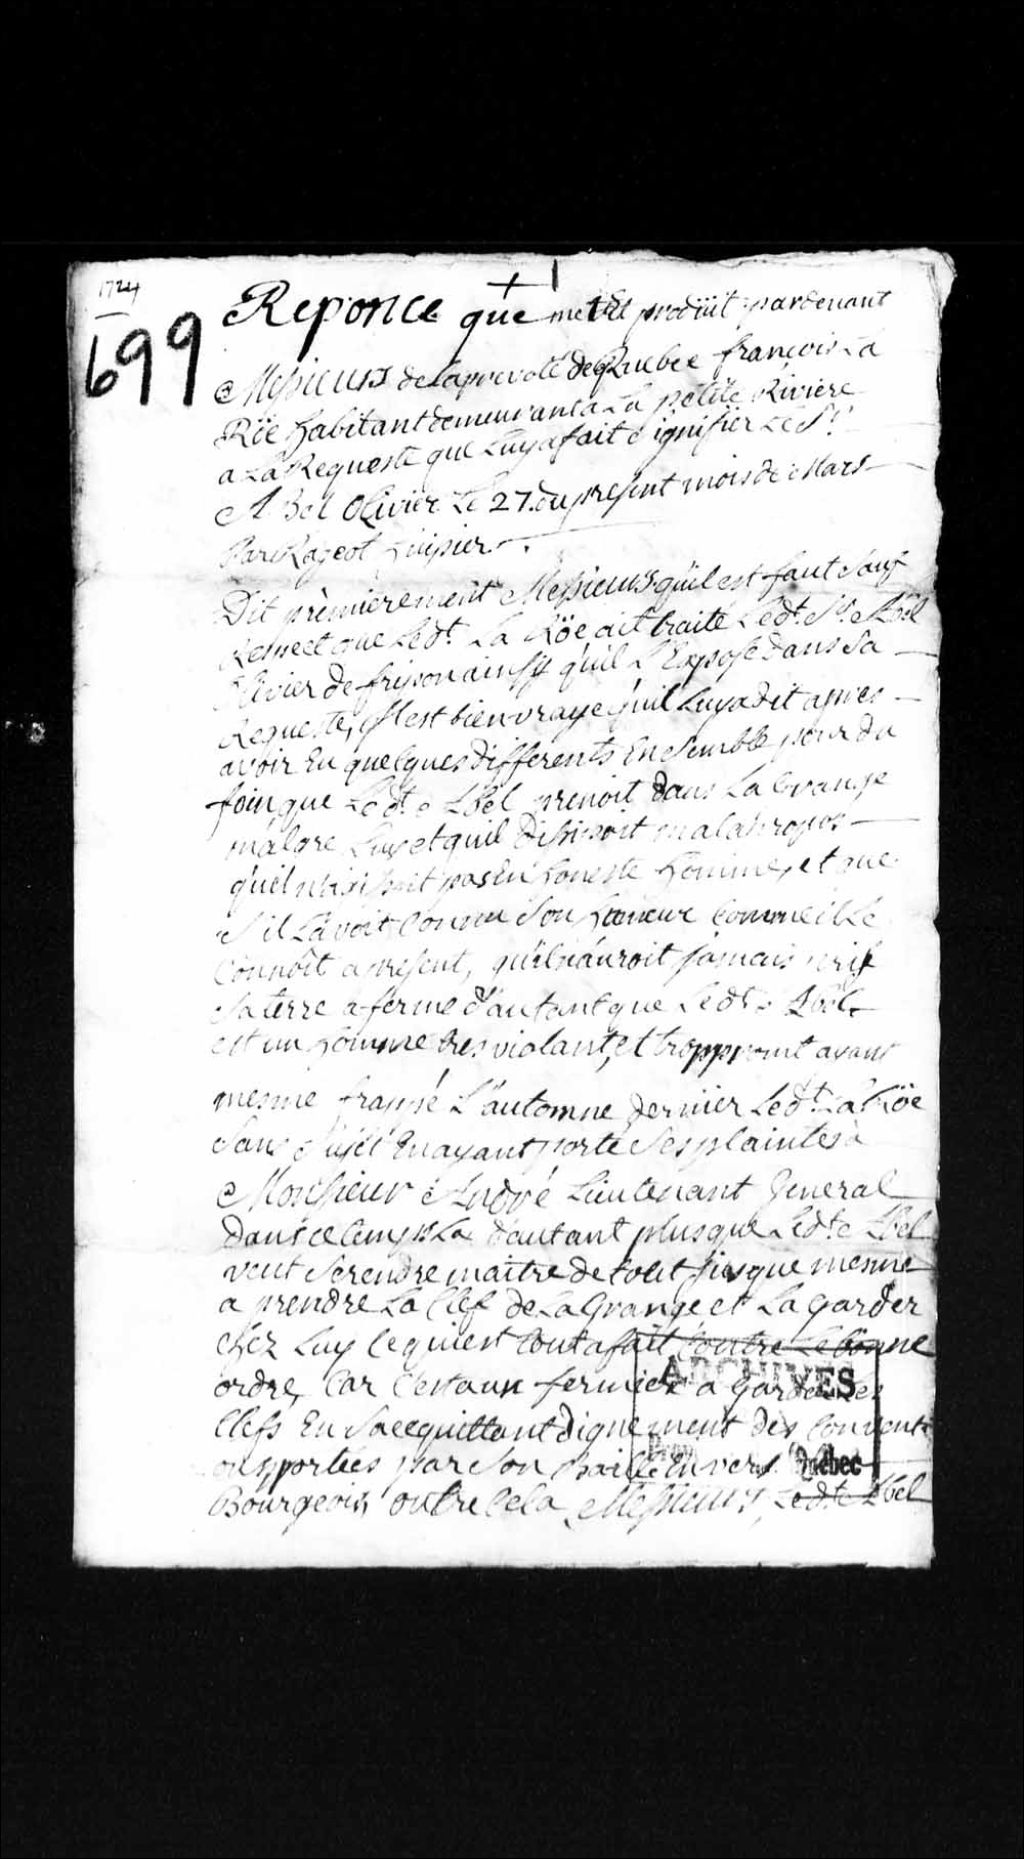 1724
699
+
Reponce que met et produit pardevant
Messieurs de la prevoté de Quebec francois La
Röe habitant demeurant a La petite Riviere
a La Requeste que Luy a fait signifier Le Sr.
Abel Olivier Le 27. du present mois de Mars
Par Rageot huissier.
Dit premierement Messieurs qu'il est faut sauf
Respect que Ledt. La Röe ait traité Ledt. Sr. Abel
Olivier de fripon ainsy qu'il L'Expose dans Sa
Requeste, Il est bien vraye qu'il Luy a dit apres
avoir Eu quelques differents Ensemble pour du
foin que Ledt. Abel prenoit dans La Grange
malgre Luy et quil mal apropos
qu'il pas En honeste homme, et que
S'il L'avoit Connu Son humeur Comme il Le
Connoît apresent, qu'il n'auroit jamais pris
Sa terre a ferme d'autant que Ledt. Abel
est un homme tres violant, et trop promt ayant
mesme frappé L'automne dernier Ledt. La Röe
Sans Sujet En ayant porté Ses plaintes à
Monsieur André Lieutenant General
Dans ce temps La d'autant plus que Ledt. Abel
veut Se rendre maître de tout jusque mesme
a prendre La Clef de La Grange et La garder
chez Luy Ce qui est tout a fait Contre Le bonne
ordre, Car C'est aux fermier a garder Les
Clefs En S'acquittant dignement des Convents
portées par Son Baille Envers Son
Bourgeois, outre Cela, Messieurs, Ledt. Abel
ARCHIVES
Québec